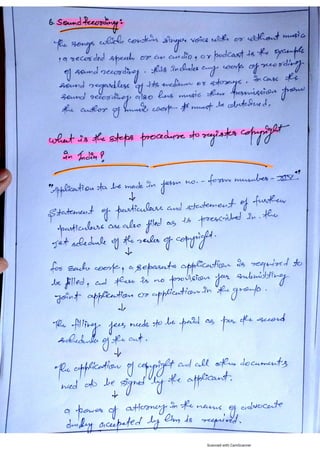 6. Sound Recording:
"The songs which contain singer voice with or without music
, a recorded speech or an audio, or podcast is the example
of sound recording. this includes any work of recording
sound regardless of its medium or storage. In case the
sound recording also has music then permission from
the author of music work must be obtained.
what is the steps procedure to register copyright
in India?
"Application to be made in form no. - form number - XIV"
↓
Statement of particulars and statement of further
particulars are also filed as is prescribed in the
1st schedule of the rules of copyright.
↓
for each work, a separate application is required to
be filled, and there is no provision for submitting
joint application or application in the group.
↓
The filling fees needs to be paid as per the second
schedule of the act.
↓
"The application of copyright and all other documents
need to be signed by the applicant.
↓
a power of attorney in the name of advocate
accepted by him is required.
Scanned with CamScanner